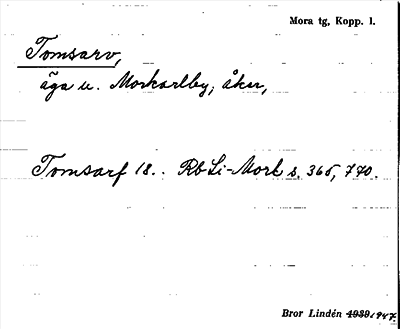 Mora tg, Kopp. l.
Tomsarv,
äga u. Morkarlby, åker,
Tomsarf 18.. Rb Li-Mork s. 365, 770.
Bror Lindén 1939 1947.